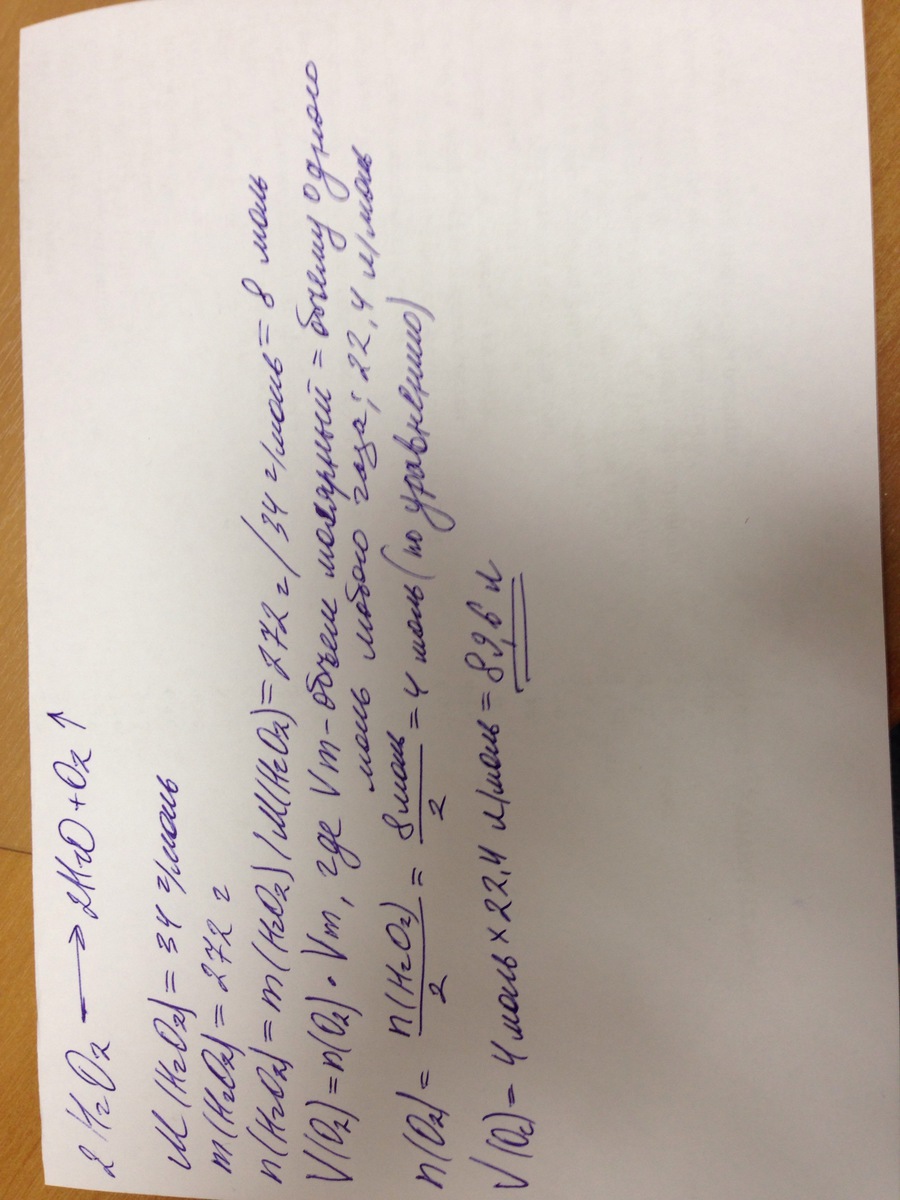 2H₂O₂ ⟶ 2H₂O + O₂↑
M(H₂O₂) = 34 г/моль
m(H₂O₂) = 272 г
n(H₂O₂) = m(H₂O₂) / M(H₂O₂) = 272 г / 34 г/моль = 8 моль
V(O₂) = n(O₂) · Vm, где Vm - объем молярный = объему одного
моль любого газа; 22,4 л/моль
n(O₂) = n(H₂O₂)/2 = 8 моль/2 = 4 моль (по уравнению)
V(O₂) = 4 моль × 22,4 л/моль = 89,6 л